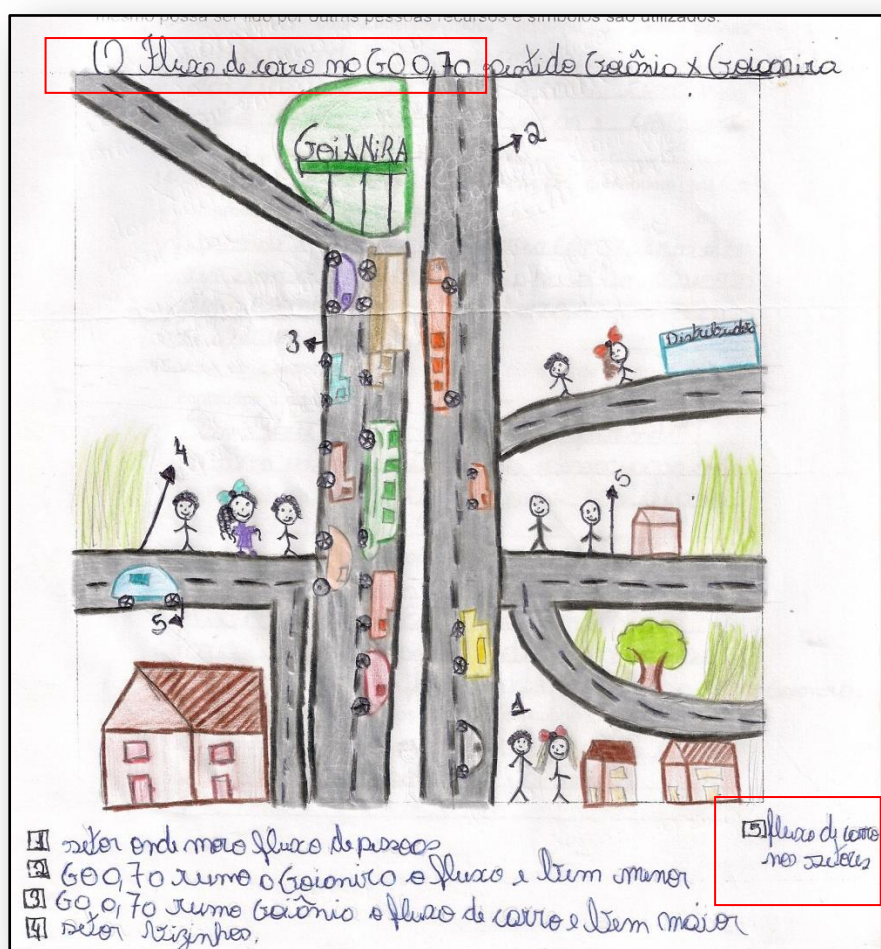 mesmo possa ser lido por outras pessoas recursos e símbolos são utilizados.
1) Fluxo de carro na GO 0,70 sentido Goiânia x Goianira
GOIANIRA
2
3
Distribuidor
4
5
5
1
1 setor onde moro fluxo de pessoas
2 GO 0,70 rumo a Goianira o fluxo e bem menor
3 GO 0,70 rumo Goiânia o fluxo de carro e bem maior
4 setor vizinhos.
5 fluxo de carro
nos setores